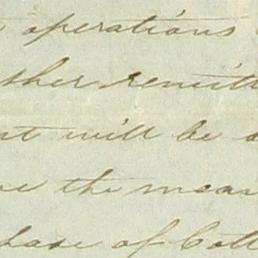 operations
ther remitt
nt will be
the mea
hase of Cott